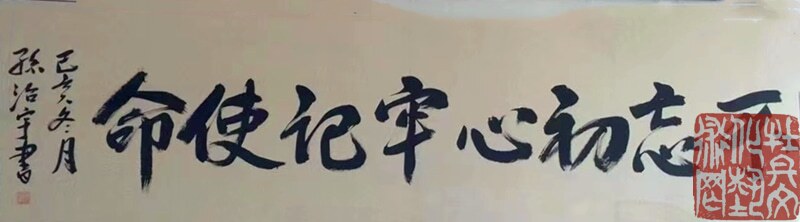 不忘初心牢记使命
己亥冬月
孙治宇书